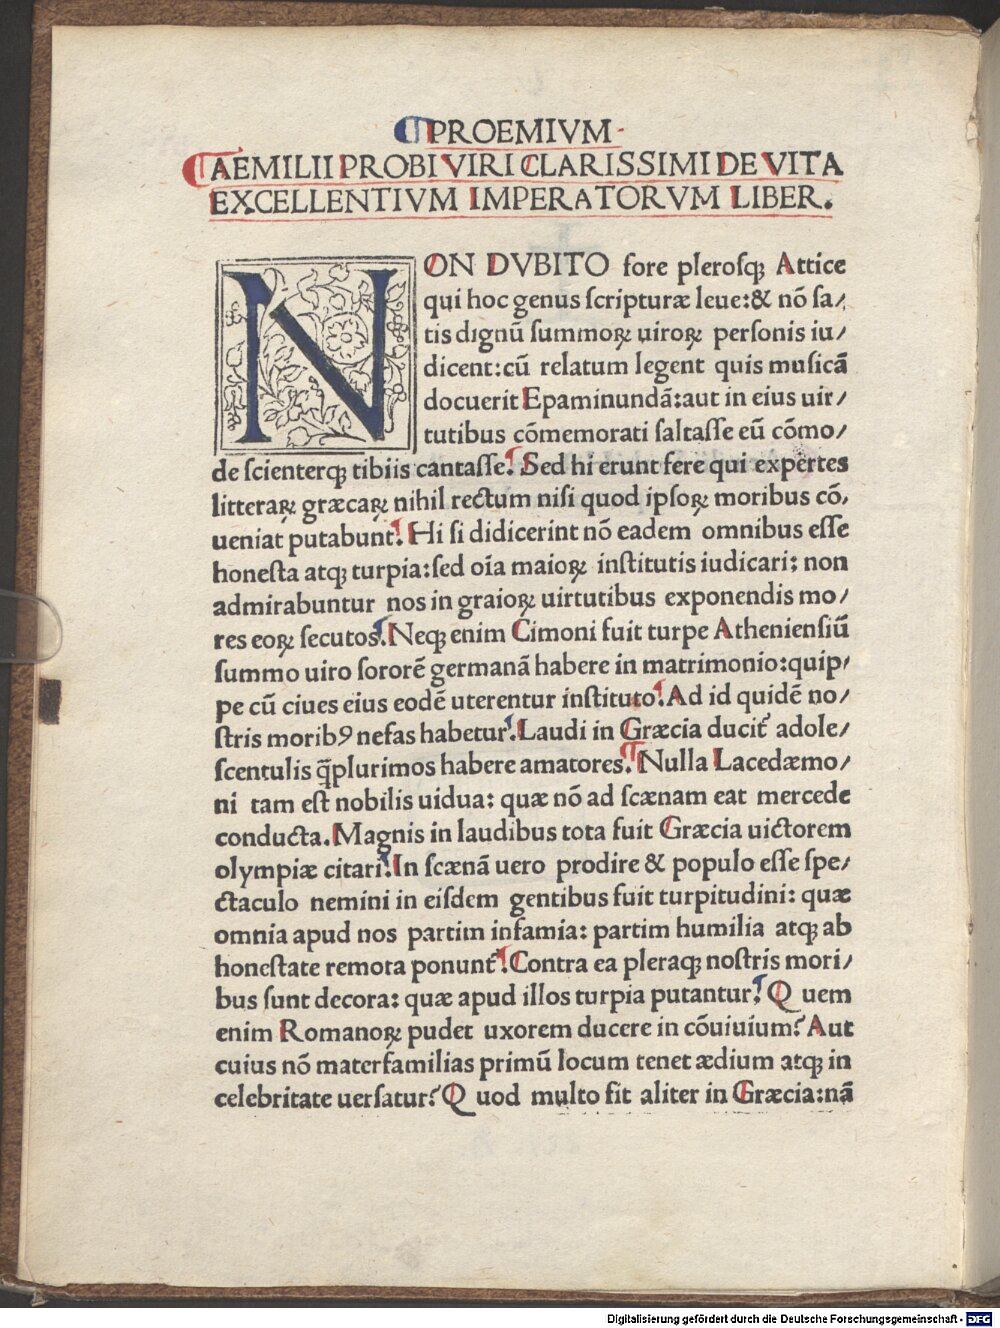 PROEMIVM.
AEMILII PROBI VIRI CLARISSIMI DE VITA
EXCELLENTIVM IMPERATORVM LIBER.
NON DVBITO fore pleroſqꝫ Attice
qui hoc genus ſcripturæ leue:& nō ſa/
tis dignū ſummoꝝ uiroꝝ perſonis iu/
dicent:cū relatum legent quis muſicā
docuerit Epaminundā:aut in eius uir/
tutibus cōmemorati ſaltaſſe eū cōmo/
de ſcienterqꝫ tibiis cantaſſe. Sed hi erunt fere qui expertes
litteraꝝ græcaꝝ nihil rectum niſi quod ipſoꝝ moribus cō/
ueniat putabunt. Hi ſi didicerint nō eadem omnibus eſſe
honeſta atqꝫ turpia:ſed oīa maioꝝ inſtitutis iudicari; non
admirabuntur nos in graioꝝ uirtutibus exponendis mo/
res eoꝝ ſecutos. Neqꝫ enim Cimoni fuit turpe Athenienſiū
ſummo uiro ſororē germanā habere in matrimonio:quip/
pe cū ciues eius eodē uterentur inſtituto. Ad id quidē no/
ſtris moribꝰ nefas habetur. Laudi in Græcia ducit᷑ adole/
ſcentulis q̄plurimos habere amatores. Nulla Lacedæmo/
ni tam eſt nobilis uidua: quæ nō ad ſcænam eat mercede
conducta. Magnis in laudibus tota fuit Græcia uictorem
olympiæ citari. In ſcænā uero prodire & populo eſſe ſpe/
ctaculo nemini in eiſdem gentibus fuit turpitudini: quæ
omnia apud nos partim infamia: partim humilia atqꝫ ab
honeſtate remota ponunt᷑. Contra ea pleraqꝫ noſtris mori/
bus ſunt decora: quæ apud illos turpia putantur. Q uem
enim Romanoꝝ pudet uxorem ducere in cōuiuium? Aut
cuius nō materfamilias primū locum tenet ædium atqꝫ in
celebritate uerſatur? Q uod multo fit aliter in Græcia:nā
Digitalisierung gefördert durch die Deutsche Forschungsgemeinschaft - DFG